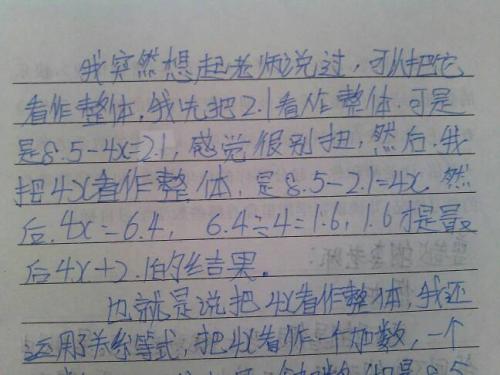 我突然想起老师说过，可以把它
看作整体，我先把2.1看作整体.可是
是8.5-4x=2.1，感觉很别扭，然后.我
把4x看作整体，是8.5-2.1=4x，然
后.4x=6.4， 6.4÷4=1.6，1.6才是最
后4x+2.1的结果。
也就是说把4x看作整体，我还
运用了关系等式，把4x看作一个加数，一个